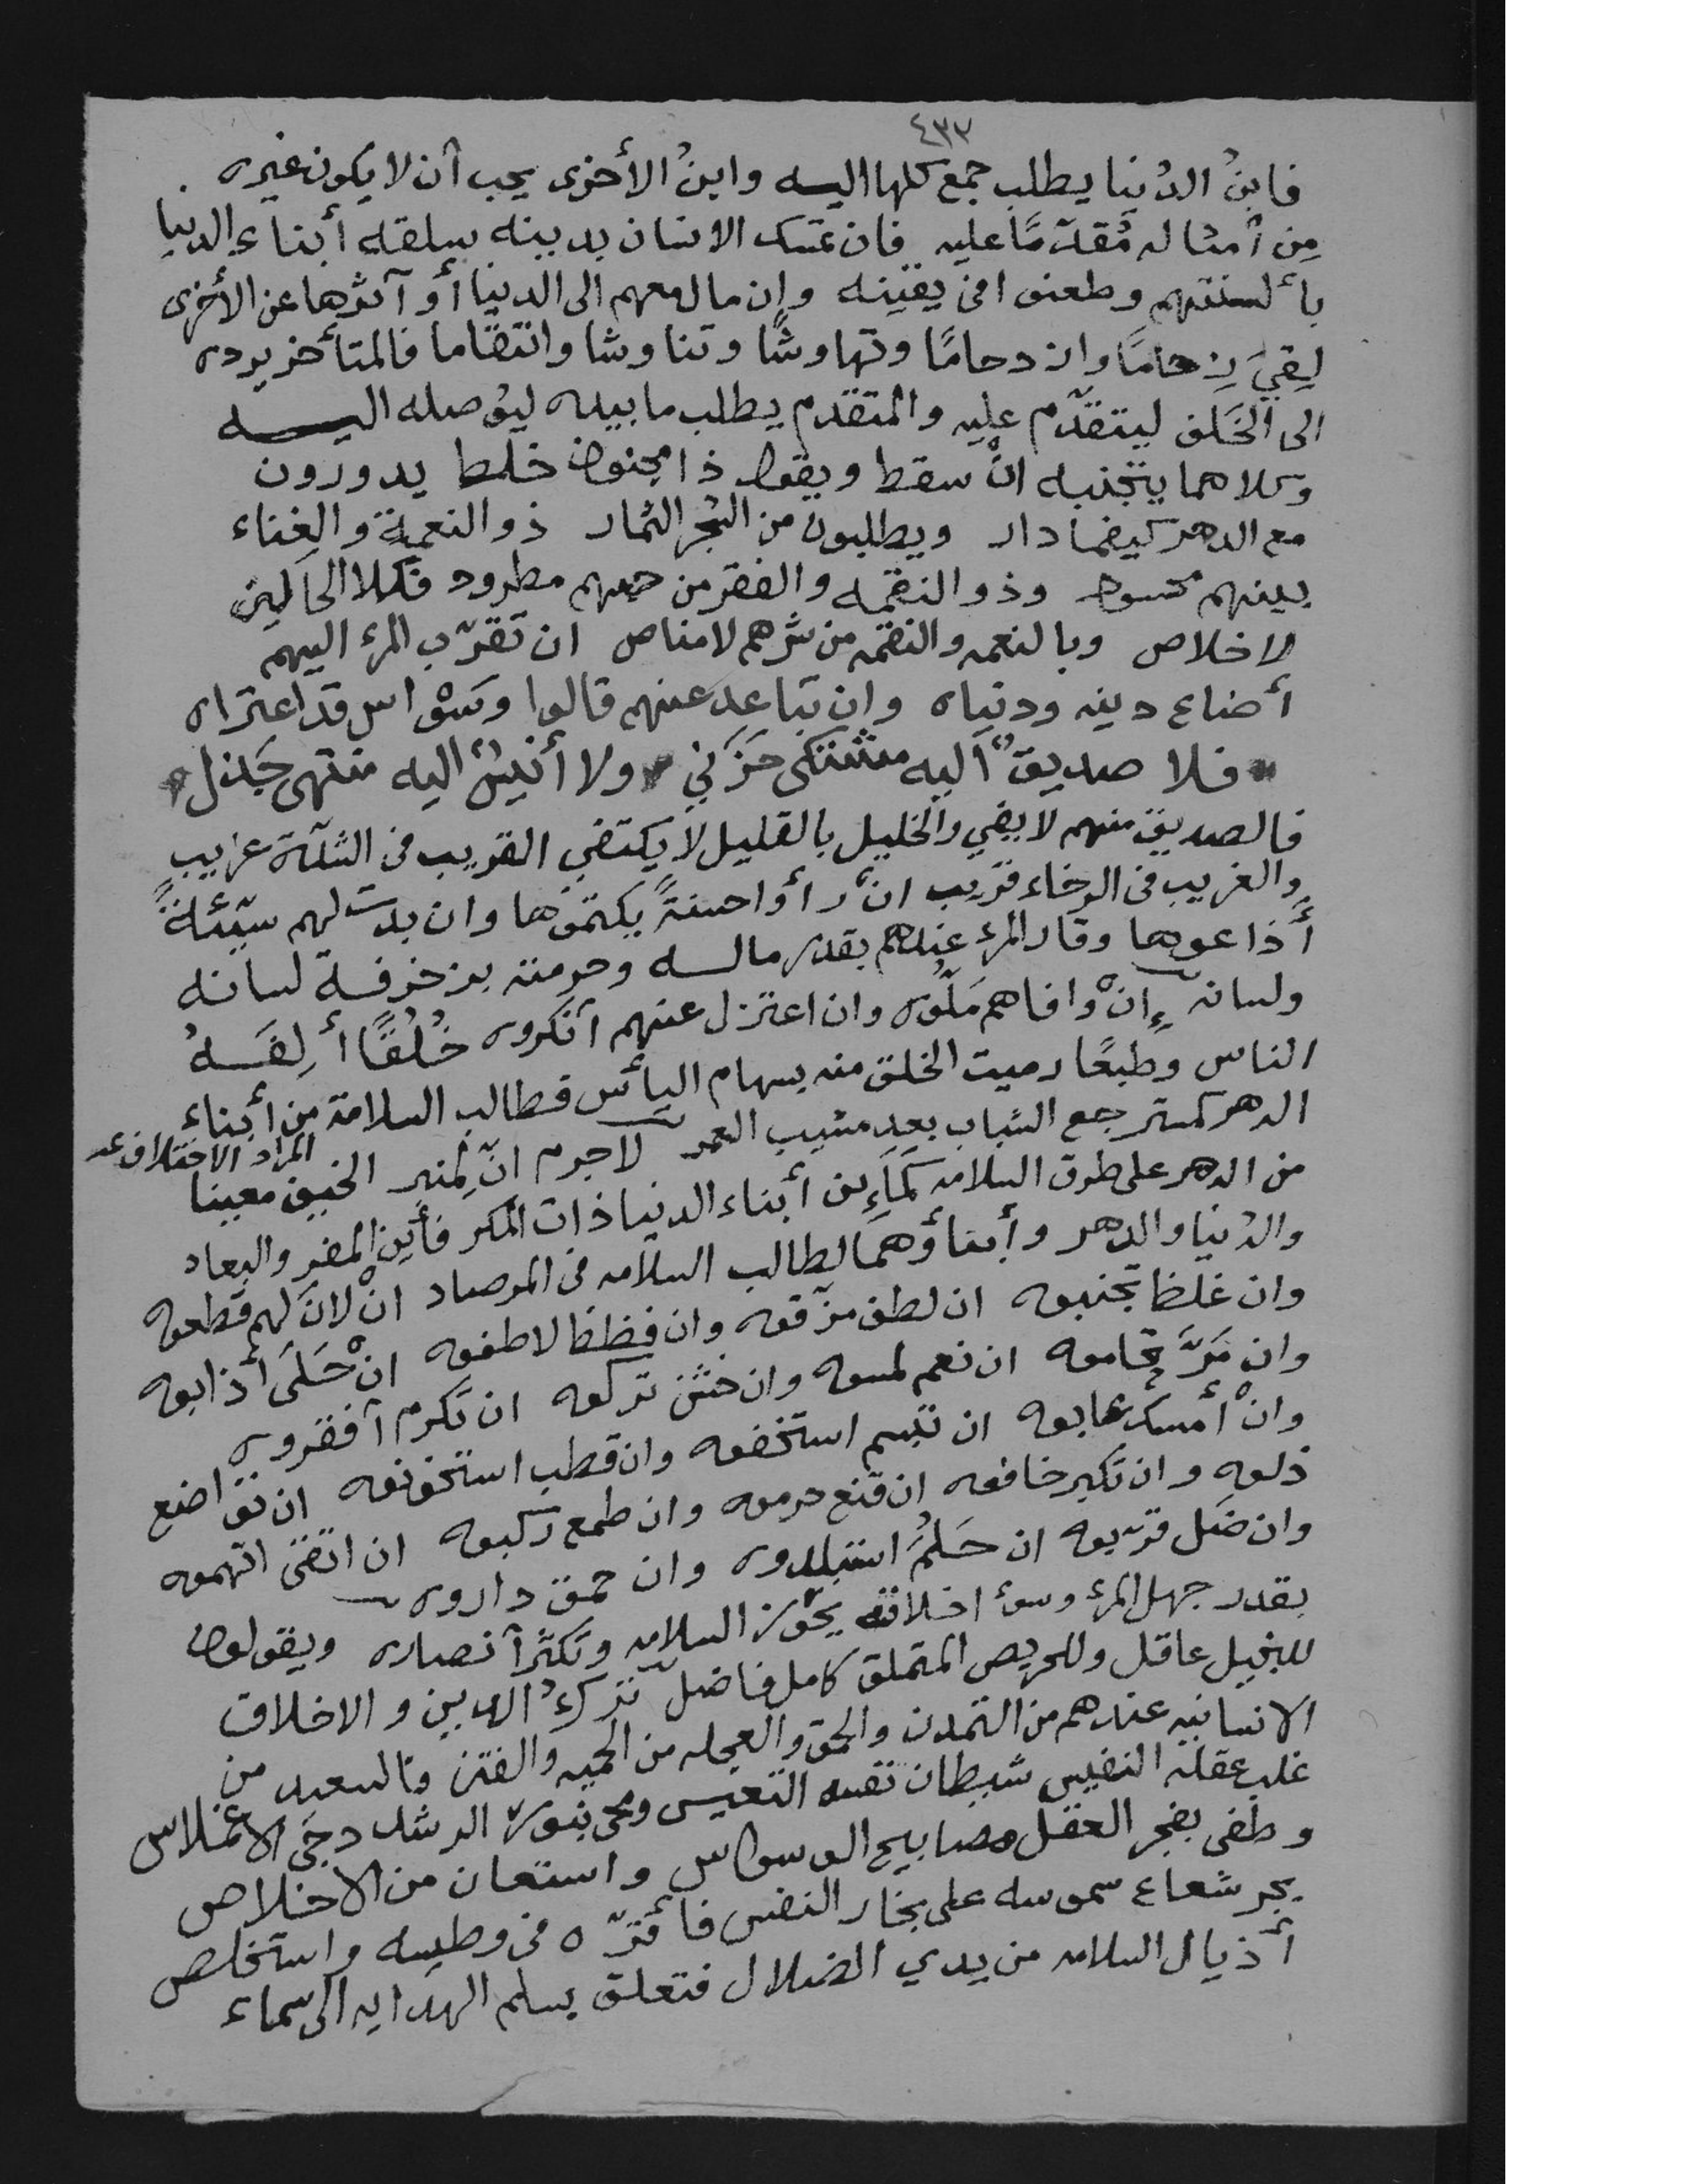 ٤٣٢
فابنُ الدُنيا يطلب جمع كلها اليه وابنُ الأخرى يحب أن لا يكون غيره
مِن أمثاله مُقدّمًا عليه فان تمسك الانسان بدينه سلقه أبناء الدنيا
بألسنتهم وطعنوا في يقينه وان مال معهم الى الدنيا أو آثرها عن الأخرى
لِقيَ زِحامًا وازدحامًا وتهاوشًا وتناوشا وانتقاما فالمتأخر يرده
الى الخَلف ليتقدّم عليه والمتقدم يطلب ما بيده ليوصله اليه
وكلاهما يتجنبه انْ سقط ويقول ذا مجنون خلط يدورون
مع الدهر كيفما دار ويطلبون من الشجر الثمار ذو النعمة والغناء
بينهم محسود وذو النقمه والفقر من حيهم مطرود فكلا الحالين
لا خلاص وبالنعمه والنقمه من شرهم لامناص ان تقرّب المرء اليهم
أضاع دينه ودنياه وان تباعد عنهم قالوا وسْواس قد اعتراه
فلا صديقٌ اليه مشتكى حَزَني ولا أنيسٌ اليه منتهى جَذل
فالصديق منهم لا يفي والخليل بالقليل لا يكتفي القريب في الشدّة غريب
والغريب في الرخاء قريب انْ رأوا حسنةً يكتموها وان بدت لهم سيّئةً
أذاعوها وقار المرء عندهم بقدر ماله وحرمته بزخرفة لسانه
ولسانه إنْ وافاهم مَلّوه وان اعتزل عنهم أنكروه خُلُقًا أَلِفَهُ
الناس وطبعًا رميت الخلق منه بسهام اليأس فطالب السلامة من أبناء
الدهر كمسترجع الشباب بعد مشيب العمر لا جرم انّ لمنبر الخبيين معيبنا
المراد الاختلاف عد
من الدهر على طرق السلامه أبناء الدنيا ذات المكر فأين المفر والبعاد
والدُنيا والدهر وأبناؤهما لطالب السلامه في المرصاد انْ لانَ لهم قطعوه
وان غلظ تجنبوه ان لطف مزّقوه وان فظظ لاطفوه انْ حَلَى أذابوه
وان مَرَّ تحاموه ان نعم لمسوه وان خشن تركوه ان تكرم أفقروه
وانْ أمسك عابوه ان تبسم استخفوه وان قطب استخونوه ان تواضع
ذلوه وان تكبر خافوه ان قنع حرموه وان طمع ركبوه ان اتقى اتهموه
وان ضَل قرّبوه ان حَلُمَ استبلدوه وان حمق داروه
بقدر جهل المرء وسوء اخلاقه يحوز السلامه وتكثر أنصاره ويقولون
للبخيل عاقل وللحريص المتملق كامل فاضل تركُ الدين والاخلاق
الانسانيه عندهم من التمدن والحمق والعجله من الحميه والفتن فالسعيد من
غلب عقله النفيس شيطان نفسه التعيس ومحى بنور الرشد دجَى الأغلاس
وطفى بفجر العقل مصابيح الوسواس واستعان من الاخلاص
بحر شعاع سموسه على بخار النفس فأقرّه في وطيسه واستخلص
أذيال السلامه من يدي الضلال فتعلق بسلم الهدايه الى سماء